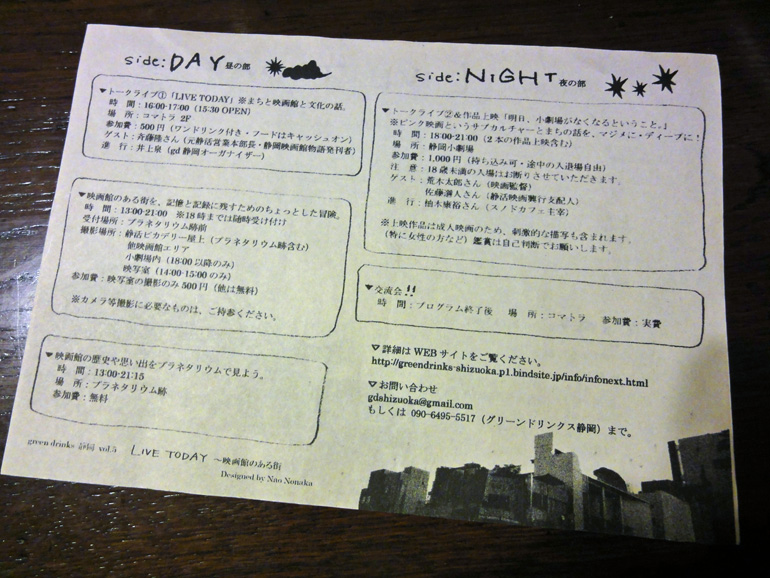 side: DAY 昼の部
▼トークライブ①「LIVE TODAY」※まちと映画館と文化の話。
時　間：16:00-17:00（15:30 OPEN）
場　所：コマトラ 2F
参加費：500円（ワンドリンク付き・フードはキャッシュオン）
ゲスト：斉藤隆さん（元静活営業本部長・静岡映画館物語発刊者）
進　行：井上泉（gd 静岡オーガナイザー）
▼映画館のある街を、記憶と記録に残すためのちょっとした冒険。
時　間：13:00-21:00　※18時までは随時受け付け
受付場所：プラネタリウム跡前
撮影場所：静活ピカデリー屋上（プラネタリウム跡含む）
他映画館エリア
小劇場内（18:00以降のみ）
映写室（14:00-15:00のみ）
参加費：映写室の撮影のみ500円（他は無料）
※カメラ等撮影に必要なものは、ご持参ください。
▼映画館の歴史や思い出をプラネタリウムで見よう。
時　間：13:00-21:15
場　所：プラネタリウム跡
参加費：無料
green drinks 静岡 vol.5　LIVE TODAY ～映画館のある街
Designed by Nao Nonaka
side: NIGHT 夜の部
▼トークライブ②&作品上映「明日、小劇場がなくなるということ。」
※ピンク映画というサブカルチャーとまちの話を、マジメに・ディープに！
時　間：18:00-21:00（2本の作品上映含む）
場　所：静岡小劇場
参加費：1,000円（持ち込み可・途中の入退場自由）
注　意：18歳未満の入場はお断りさせていただきます。
ゲスト：荒木太郎さん（映画監督）
佐藤選人さん（静活映画興行支配人）
進　行：柚木康裕さん（スノドカフェ主宰）
※上映作品は成人映画のため、刺激的な描写も含まれます。
（特に女性の方など）鑑賞は自己判断でお願いします。
▼交流会!!
時　間：プログラム終了後　場　所：コマトラ　参加費：実費
▽詳細はWEBサイトをご覧ください。
http://greendrinks-shizuoka.p1.bindsite.jp/info/infonext.html
▽お問い合わせ
gdshizuoka@gmail.com
もしくは 090-6495-5517（グリーンドリンクス静岡）まで。